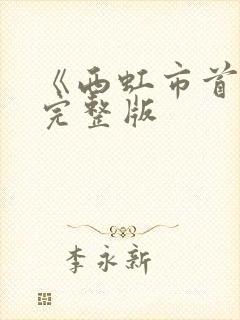 《西虹市首
完整版
李永新